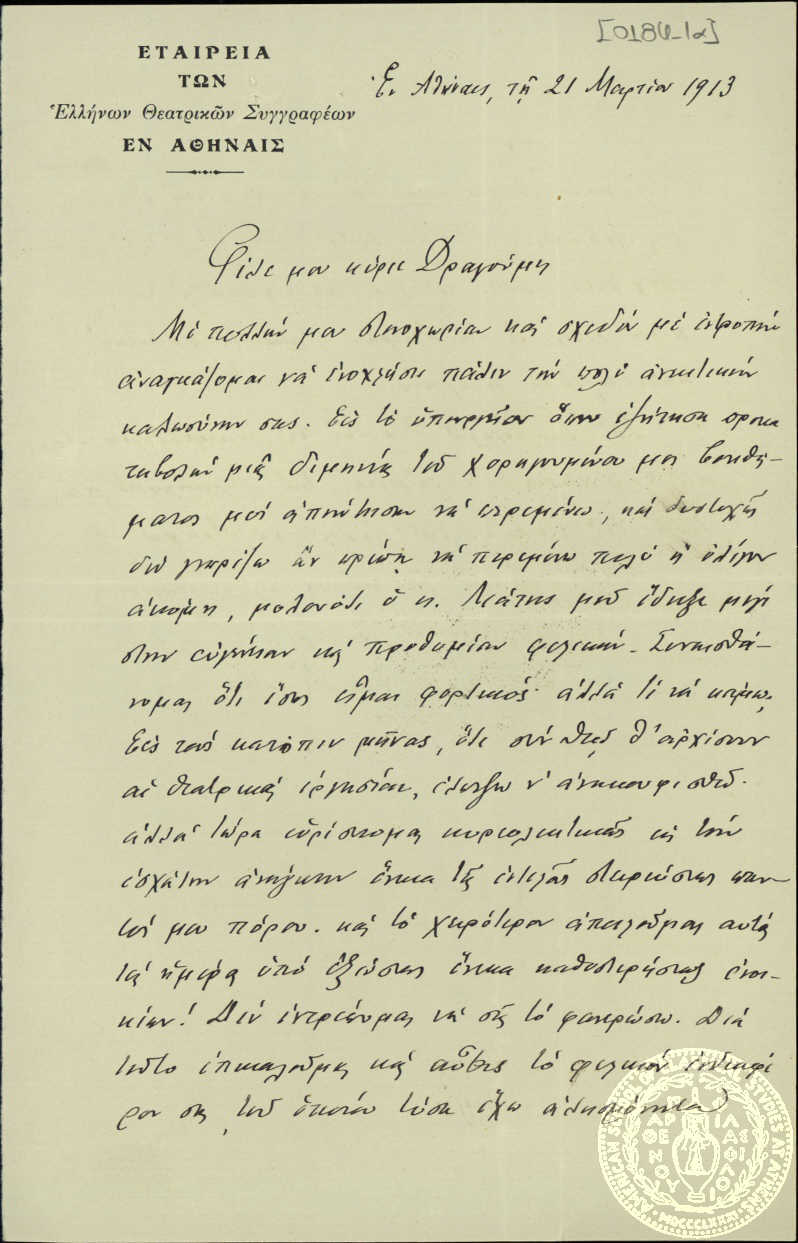 [0186-1α]
ΕΤΑΙΡΕΙΑ
ΤΩΝ
Ἑλλήνων Θεατρικῶν Συγγραφέων
ΕΝ ΑΘΗΝΑΙΣ
Ἐν Ἀθήναις, τῇ 21 Μαρτίου 1913
Φίλε μου κύριε Δραγούμη
Μὲ πολλήν μου στενοχωρίαν καὶ σχεδὸν μὲ ἐντροπὴν
ἀναγκάζομαι νὰ ἐνοχλήσω πάλιν τὴν πολὺ ἀνεκτικὴν
καλωσύνην σας. Εἰς τὸ ὑπουργεῖον ὅπου ἐζήτησα προκα
ταβολὴν μιᾶς διμηνίας τοῦ χορηγουμένου μοι βοηθή-
ματος μοὶ ἀπήντησαν νὰ περιμένω, καὶ δυστυχῶς
δὲν γνωρίζω ἂν πρέπῃ νὰ περιμένω πολὺ ἢ ὀλίγον
ἀκόμη, μολονότι ὁ κ. μοῦ ἔδειξε μεγί
στην εὐγένειαν καὶ προθυμίαν φιλικήν. Συναισθά-
νομαι ὅτι ἴσως εἶμαι φορτικός· ἀλλὰ τί νὰ κάμω;
Εἰς τοὺς κατόπιν μῆνας, ὅτε σὺν Θεῷ θ' ἀρχίσουν
αἱ θεατρικαὶ ἐργασίαι, ἐλπίζω ν' ἀνακουφισθῶ.
ἀλλὰ τώρα εὑρίσκομαι κυριολεκτικῶς εἰς τὴν
ἐσχάτην ἀνάγκην ἕνεκα τῆς ἐντελοῦς στερήσεως παν-
τός μου πόρου. καὶ τὸ χειρότερον ἀπειλοῦμαι αὐτὰς
τὰς ἡμέρας ὑπὸ ἐξώσεως ἕνεκα καθυστερήσεως ἐνοι-
κίων! Δὲν ἐντρέπομαι νὰ σᾶς τὸ φανερώσω. Διὰ
τοῦτο ἐπικαλοῦμαι καὶ αὖθις τὸ φιλικὸν ἐνδιαφέ
ρον σας, τοῦ ὁποίου τόσα ἔχω
AMERICAN SCHOOL OF CLASSICAL STUDIES AT ATHENS
MDCCCLXXXI